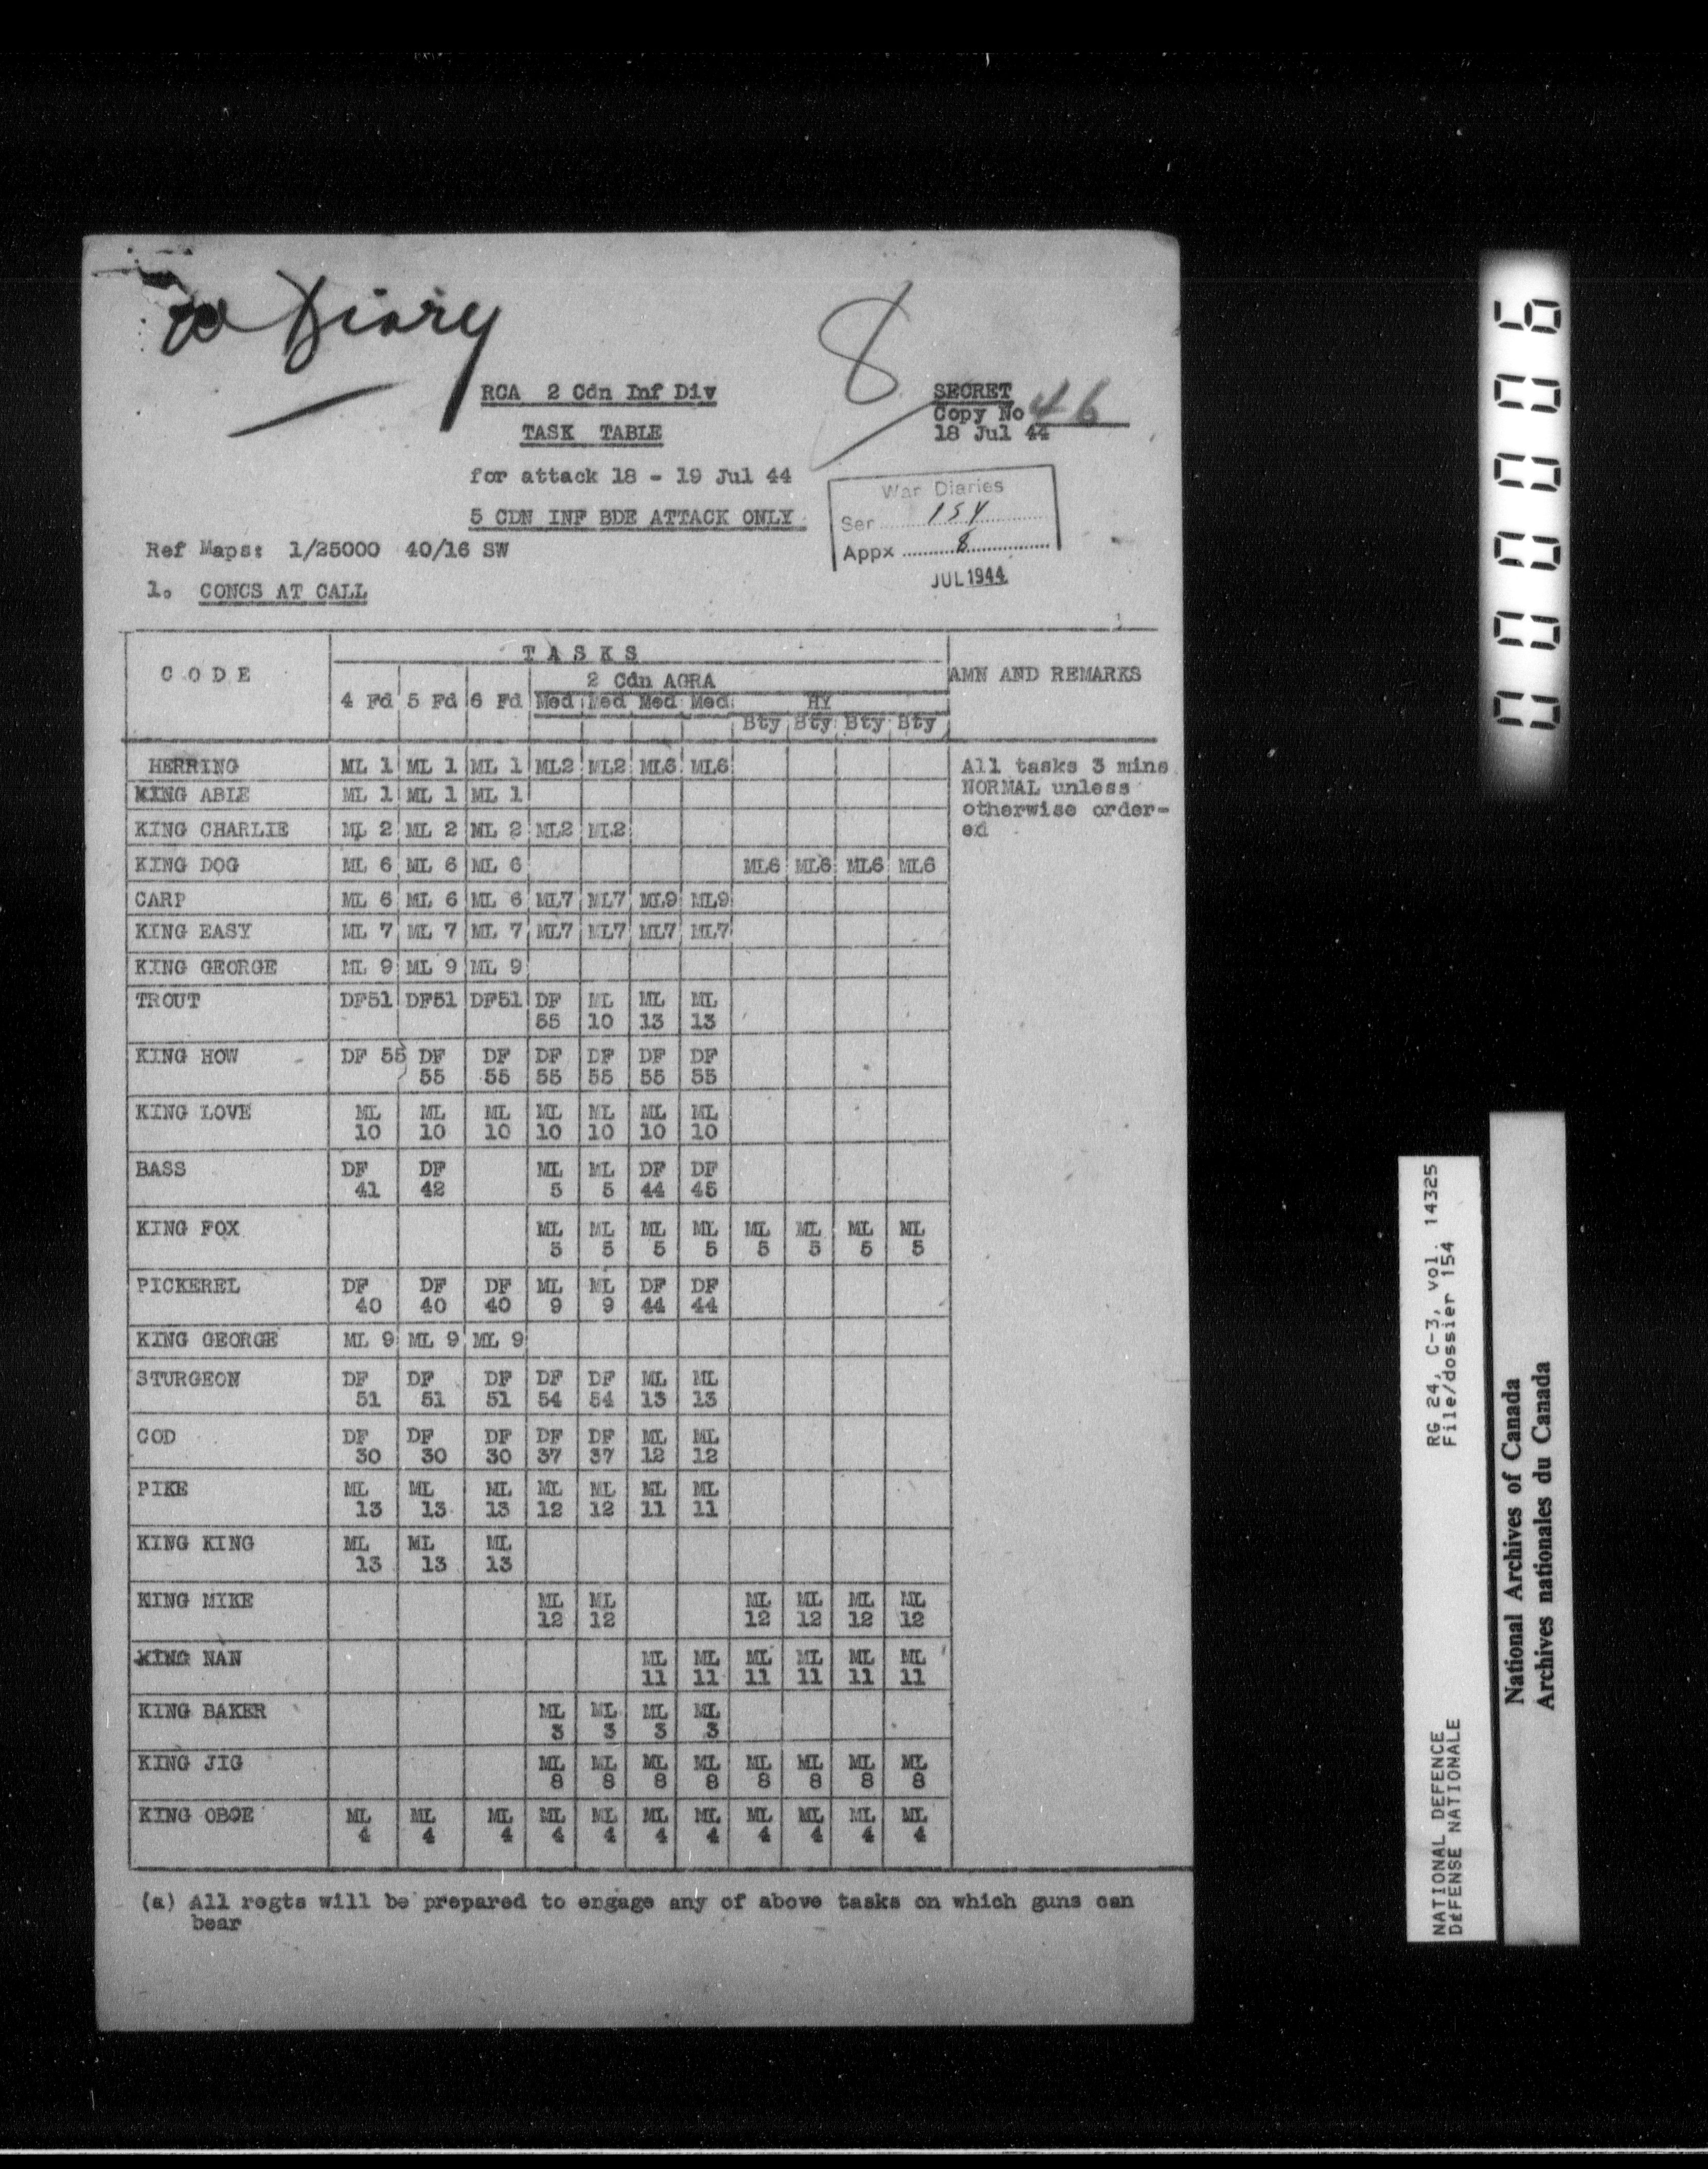 Diary
8
RCA 2 Cdn Inf Div
SECRET
Copy No 46
18 Jul 44
TASK TABLE
for attack 18 - 19 Jul 44
5 CDN INF BDE ATTACK ONLY
War Diaries
Ser 154
Appx 8
JUL 1944
Ref Maps: 1/25000 40/16 SW
1. CONCS AT CALL
CODE TASKS AMN AND REMARKS
2 Cdn AGRA
4 Fd 5 Fd 6 Fd Med Med Med Med HY
Bty Bty Bty Bty
HERRING ML 1 ML 1 ML 1 ML2 ML2 ML6 ML6 All tasks 3 mins
KING ABLE ML 1 ML 1 ML 1 NORMAL unless
otherwise order-
KING CHARLIE ML 2 ML 2 ML 2 ML2 ML2 ed
KING DOG ML 6 ML 6 ML 6 ML6 ML6 ML6 ML6
CARP ML 6 ML 6 ML 6 ML7 ML7 ML9 ML9
KING EASY ML 7 ML 7 ML 7 ML7 ML7 ML7 ML7
KING GEORGE ML 9 ML 9 ML 9
TROUT DF51 DF51 DF51 DF ML ML ML
55 10 13 13
KING HOW DF 55 DF DF DF DF DF DF
55 55 55 55 55 55
KING LOVE ML ML ML ML ML ML ML
10 10 10 10 10 10 10
BASS DF DF ML ML DF DF
41 42 5 5 44 45
KING FOX ML ML ML ML ML ML ML ML
5 5 5 5 5 5 5 5
PICKEREL DF DF DF ML ML DF DF
40 40 40 9 9 44 44
KING GEORGE ML 9 ML 9 ML 9
STURGEON DF DF DF DF DF ML ML
51 51 51 54 54 13 13
COD DF DF DF DF DF ML ML
30 30 30 37 37 12 12
PIKE ML ML ML ML ML ML ML
13 13 13 12 12 11 11
KING KING ML ML ML
13 13 13
KING MIKE ML ML ML ML ML ML
12 12 12 12 12 12
KING NAN ML ML ML ML ML ML
11 11 11 11 11 11
KING BAKER ML ML ML ML
3 3 3 3
KING JIG ML ML ML ML ML ML ML ML
8 8 8 8 8 8 8 8
KING OBOE ML ML ML ML ML ML ML ML ML ML ML
4 4 4 4 4 4 4 4 4 4 4
(a) All regts will be prepared to engage any of above tasks on which guns can
bear
000006
NATIONAL DEFENCE RG 24, C-3, vol. 14325
DÉFENSE NATIONALE File/dossier 154
National Archives of Canada
Archives nationales du Canada